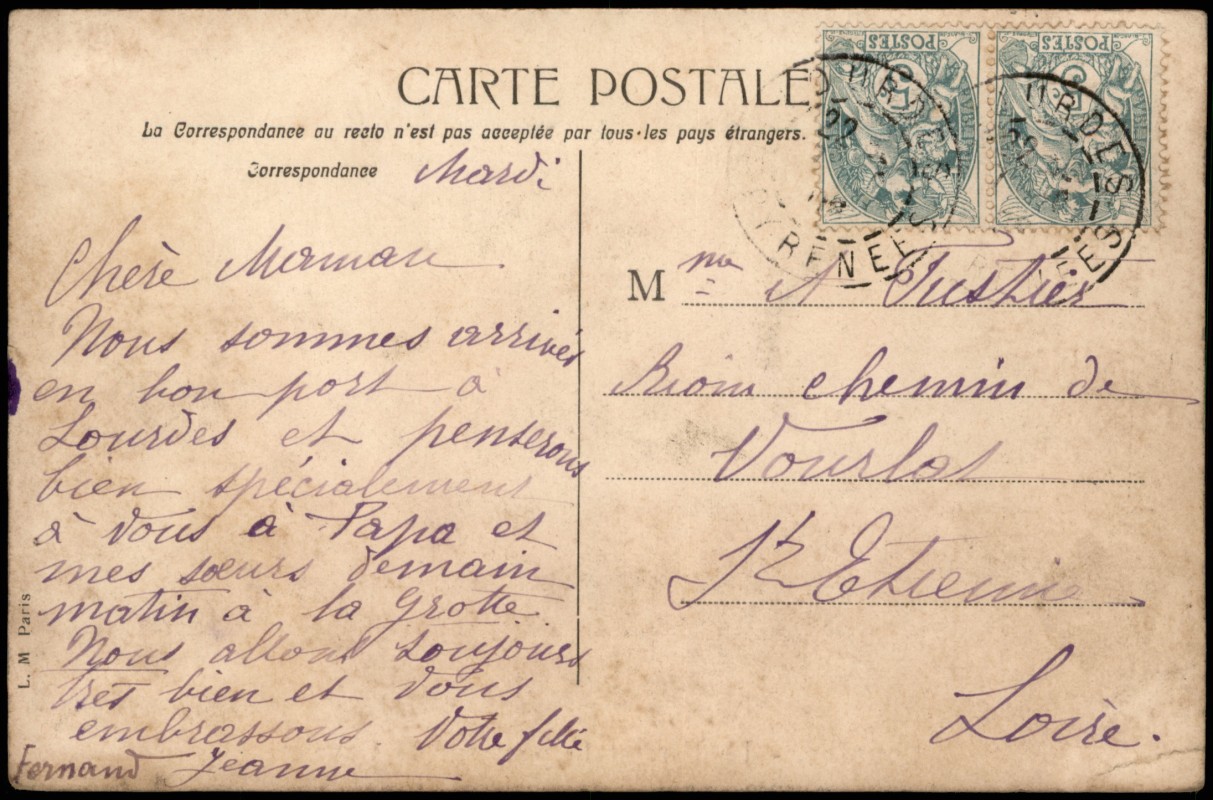 CARTE POSTALE
La Correspondance au recto n'est pas acceptée par tous les pays étrangers.
Correspondance
Mardi
Chère Maman.
Nous sommes arrivés
en bon port à
Lourdes et penserons
bien spécialement
à vous à Papa et
mes sœurs demain
matin à la Grotte.
Nous allons toujours
très bien et vous
embrassons. Votre fille
Fernand Jeanne
L. M Paris
POSTES
5
POSTES
5
LOURDES
22
PYRENEES
LOURDES
M me A
chemin de
St Etienne
Loire.